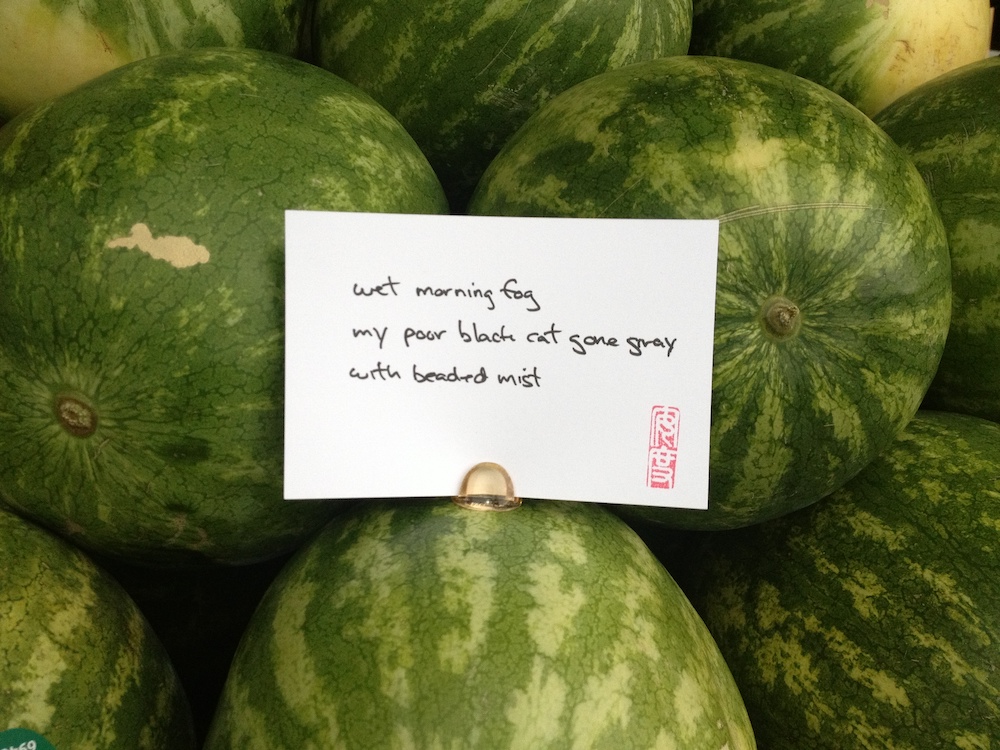 wet morning fog
my poor black cat gone gray
with beaded mist